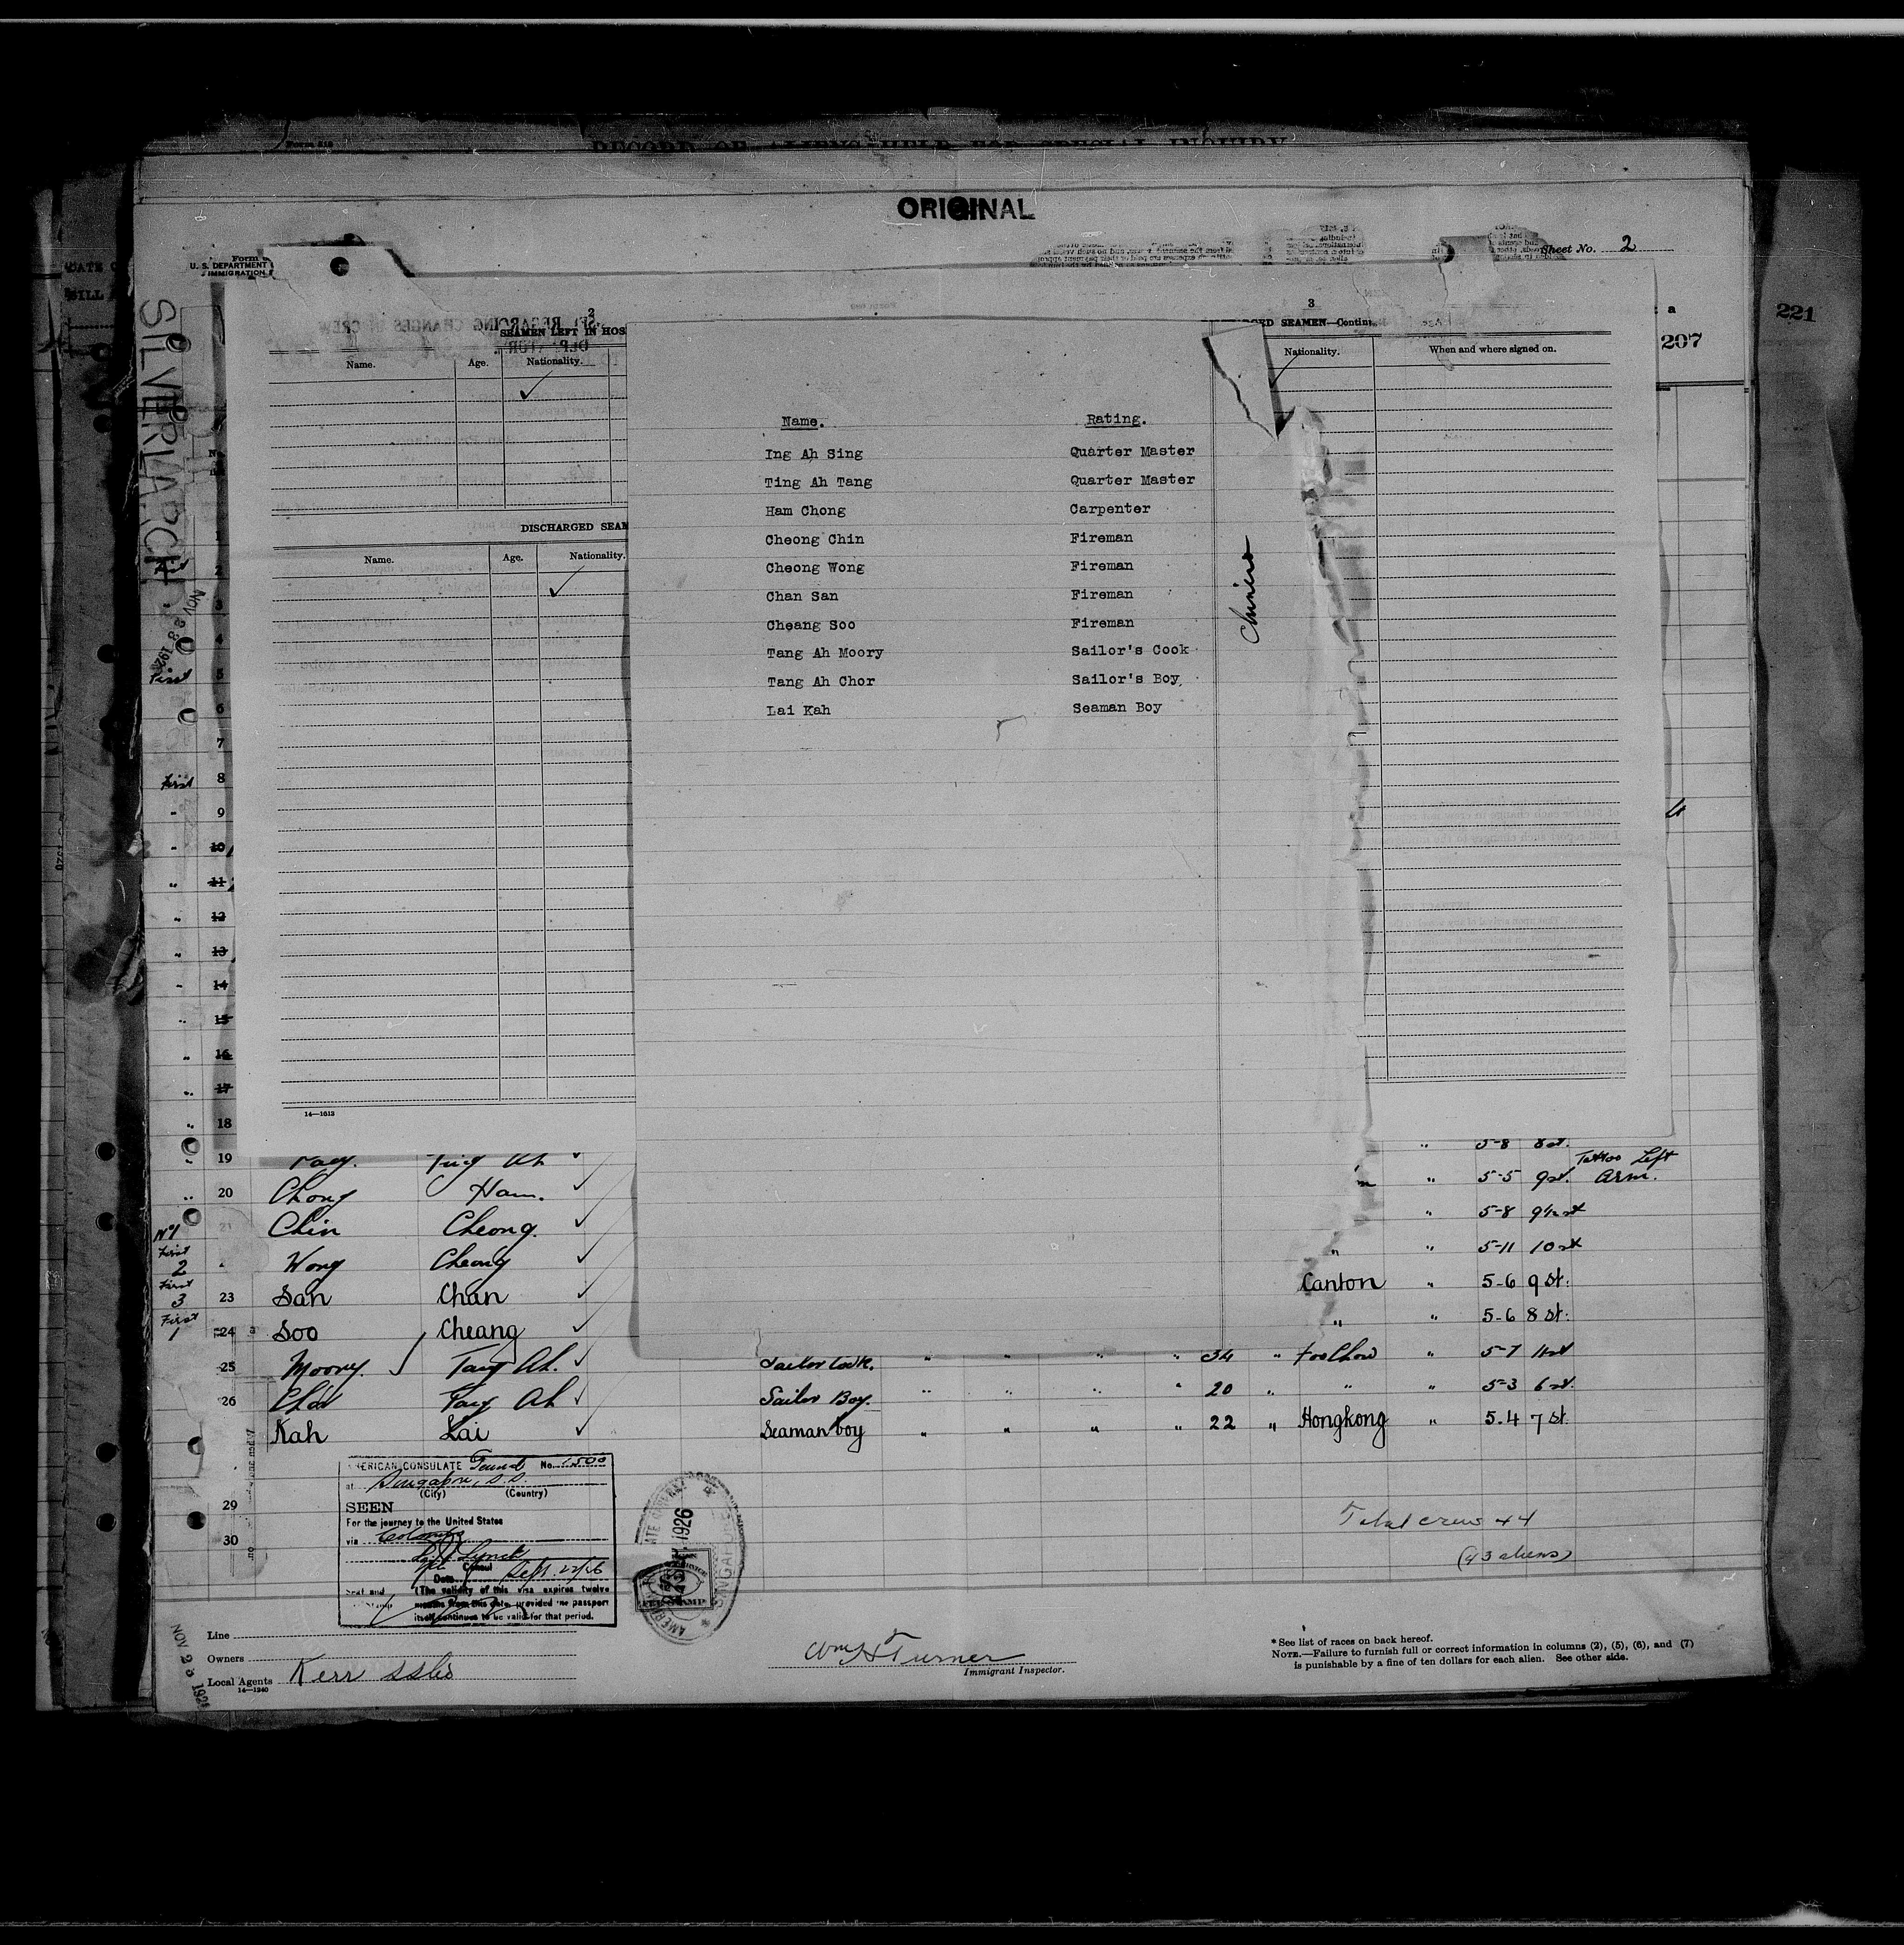 Form 618
RECORD OF ALIENS HELD FOR SPECIAL INQUIRY
ORIGINAL
Sheet No. 2
U. S. DEPARTMENT
IMMIGRATION
SILVERLARCH
221
207
2
SEAMEN LEFT IN HOS
Name. Age. Nationality.
DISCHARGED SEAM
Name. Age. Nationality.
14—1613
3
GED SEAMEN—Contin
Nationality. When and where signed on.
Name. Rating.
Ing Ah Sing Quarter Master
Ting Ah Tang Quarter Master
Ham Chong Carpenter
Cheong Chin Fireman
Cheong Wong Fireman
Chan San Fireman
Cheang Soo Fireman
Tang Ah Moory Sailor's Cook
Tang Ah Chor Sailor's Boy
Lai Kah Seaman Boy
Chinese
First 5
First 8
" 9
" 10
" 11
" 12
" 13
" 14
" 15
" 16
" 17
" 18 " 5-8 8 st.
" 19 Ting Ah " 5-5 9 st. Tattoo Left Arm.
" 20 Chong Ham. " 5-8 9½ st
No 1 First 21 Chin Cheong. " " 5-11 10 st
2 First Wong Cheong Canton " 5-6 9 st.
3 First 23 San Chan " " 5-6 8 st.
1 24 Soo Cheang
25 Moory Tang Ah. Sailor Cook. " " " " 34 " Foochow " 5-7 11 st
26 Chor Tang Ah Sailor Boy. " " " " 20 " " " 5-3 6 st.
Kah Lai Seaman boy " " " " 22 " Hongkong " 5.4 7 st.
29
30
AMERICAN CONSULATE General No. 1500
at Singapore, S.S.
(City) (Country)
SEEN
For the journey to the United States
via Colombo
Consul
Date Sept. 22/26
(The validity of this visa expires twelve
months from this date, provided the passport
itself continues to be valid for that period.
1926
SINGAPORE
FEE STAMP
Total crew 44
(43 aliens)
NOV 23 192
Line
Owners
Local Agents Kerr SS Co
14—1240
Wm H Turner
Immigrant Inspector.
* See list of races on back hereof.
NOTE.—Failure to furnish full or correct information in columns (2), (5), (6), and (7)
is punishable by a fine of ten dollars for each alien. See other side.